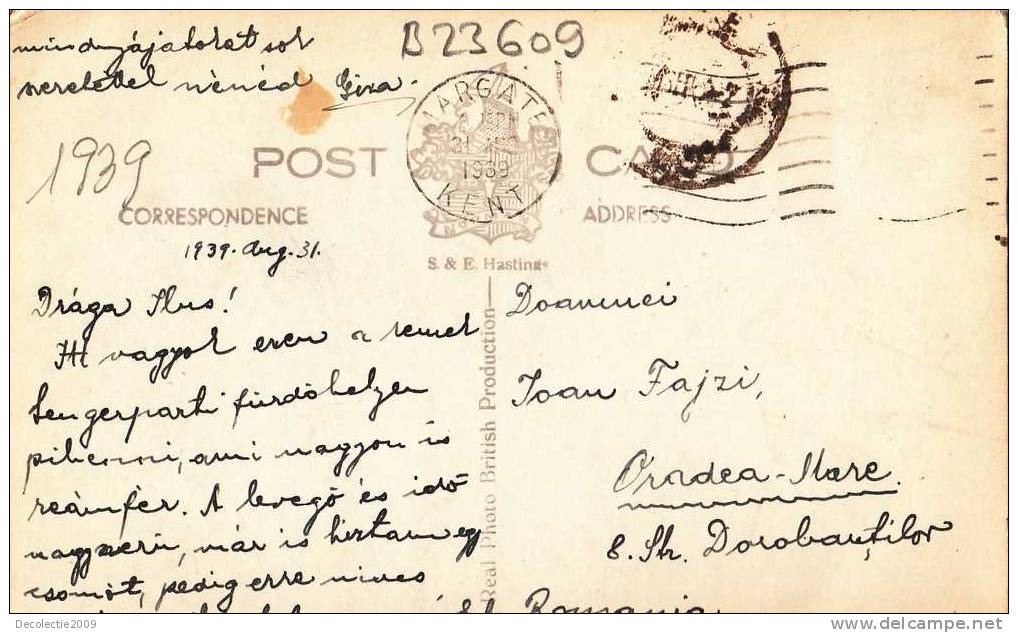 mindnyájatokat sok
szeretettel nénéd Giza
B23609
1939
MARGATE
1939
KENT
POST CARD
CORRESPONDENCE
ADDRESS
S. & E. Hastings
Real Photo British Production
1939. Aug. 31.
Drága Ibus!
Itt vagyok ezen a remek
tengerparti fürdőhelyen
pihenni, ami nagyon is
reámfér. A levegő és idő
nagyszerű, már is híztam egy
csomót, pedig erre nincs
Doamnei
Ioan Fajzi,
Oradea-Mare.
8. Str. Dorobanților
Romania
Decolectie2009
delcampe.net